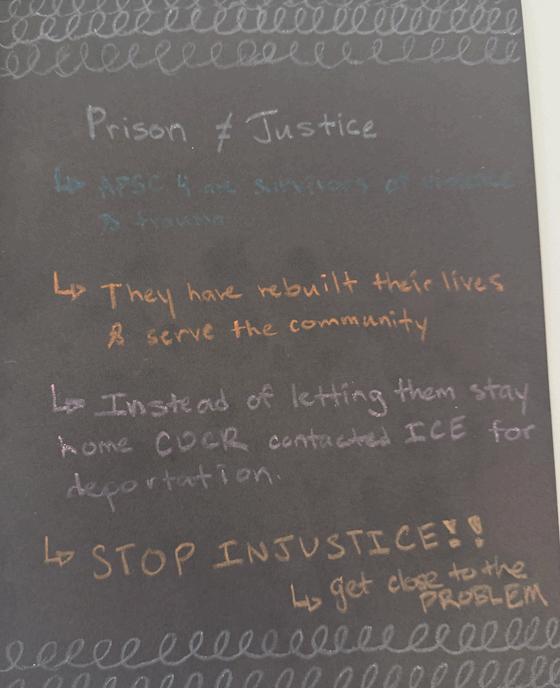 Prison ≠ Justice
↳ APSC 4 are survivors of violence
& trauma
↳ They have rebuilt their lives
& serve the community
↳ Instead of letting them stay
home CDCR contacted ICE for
deportation.
↳ STOP INJUSTICE!!
↳ get close to the
PROBLEM